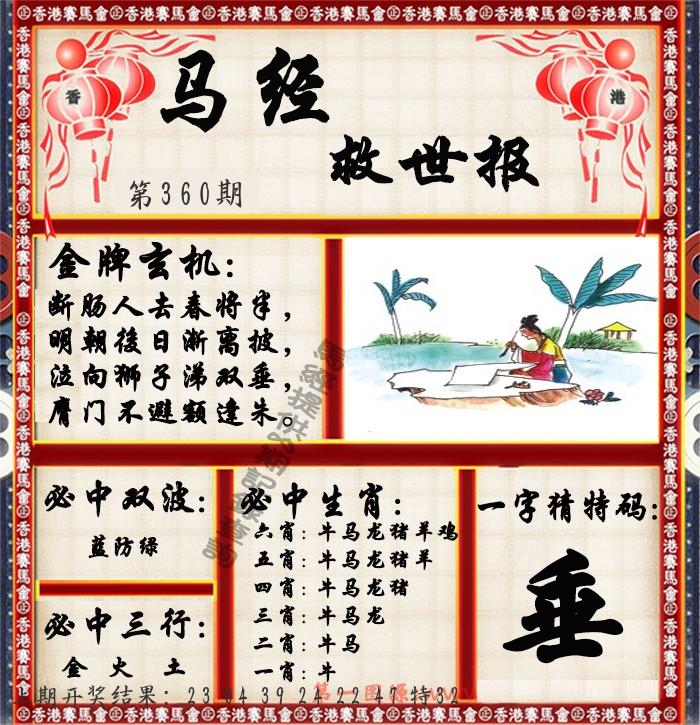 香港賽馬會
香
港
马经
救世报
第360期
金牌玄机：
断肠人去春将半，
明朝後日渐离披，
泣向狮子涕双垂，
膺门不避额逢朱。
必中双波：
蓝防绿
必中三行：
金 火 土
必中生肖：
六肖：牛马龙猪羊鸡
五肖：牛马龙猪羊
四肖：牛马龙猪
三肖：牛马龙
二肖：牛马
一肖：牛
一字猜特码：
垂
期开奖结果：23 04 39 24 22 47 特32
第一图源